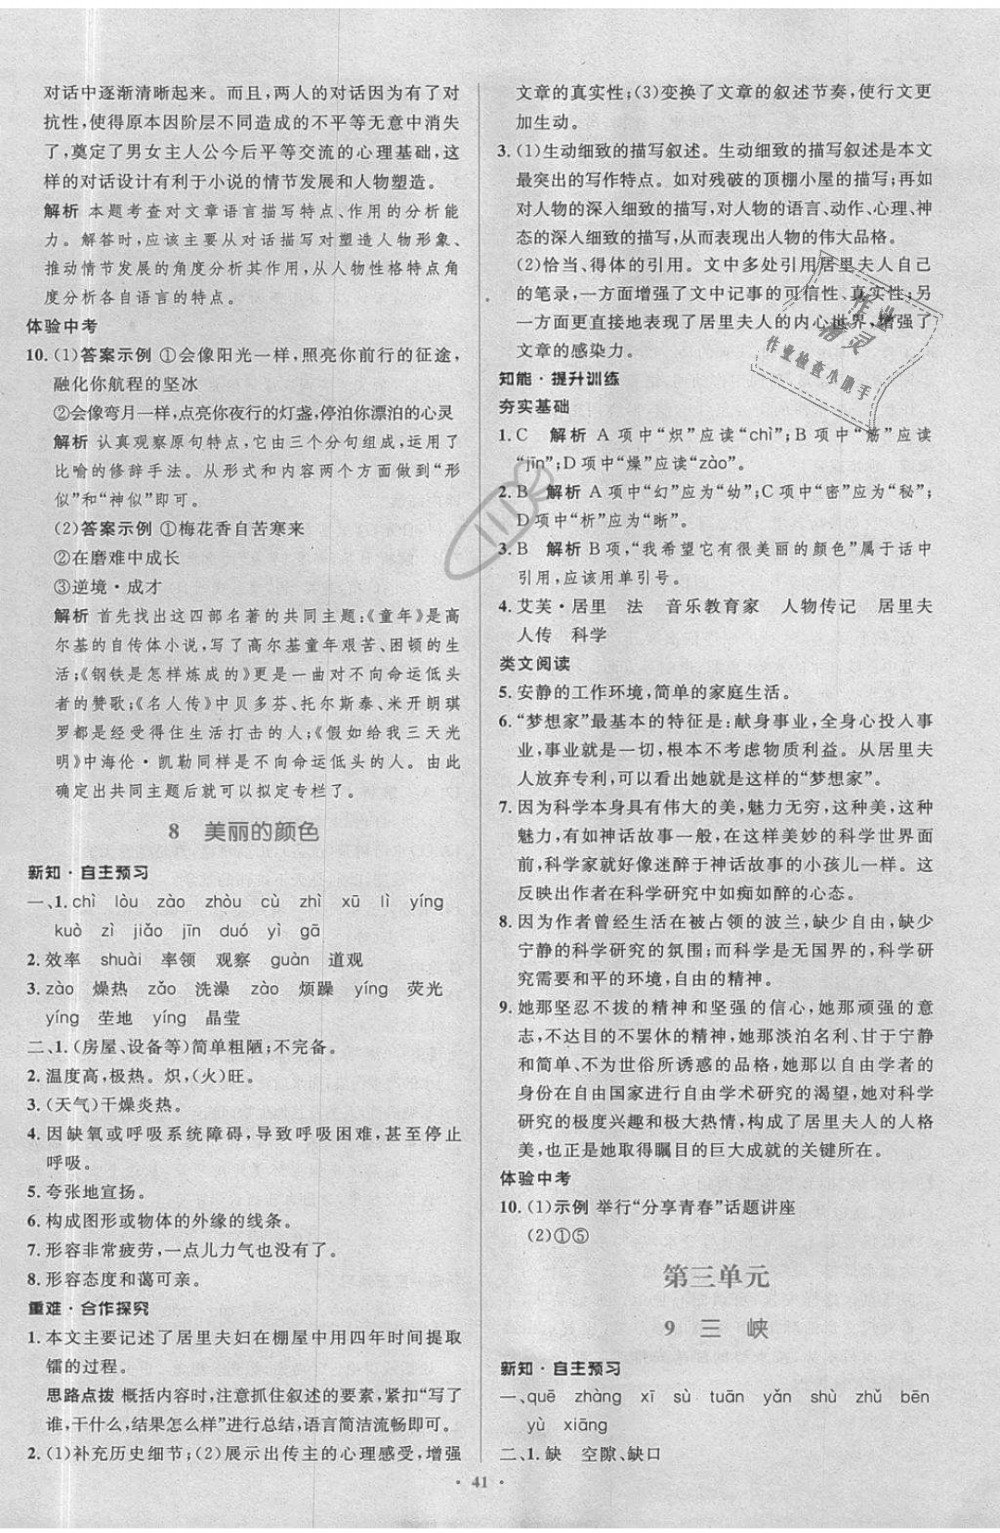 对话中逐渐清晰起来。而且,两人的对话因为有了对
抗性,使得原本因阶层不同造成的不平等无意中消失
了,奠定了男女主人公今后平等交流的心理基础,这
样的对话设计有利于小说的情节发展和人物塑造。
解析 本题考查对文章语言描写特点、作用的分析能
力。解答时,应该主要从对话描写对塑造人物形象、
推动情节发展的角度分析其作用,从人物性格特点角
度分析各自语言的特点。
体验中考
10. (1)答案示例 ①会像阳光一样,照亮你前行的征途,
融化你航程的坚冰
②会像弯月一样,点亮你夜行的灯盏,停泊你漂泊的心灵
解析 认真观察原句特点,它由三个分句组成,运用了
比喻的修辞手法。从形式和内容两个方面做到“形
似”和“神似”即可。
(2)答案示例 ①梅花香自苦寒来
②在磨难中成长
③逆境·成才
解析 首先找出这四部名著的共同主题:《童年》是高
尔基的自传体小说,写了高尔基童年艰苦、困顿的生
活;《钢铁是怎样炼成的》更是一曲对不向命运低头者
的赞歌;《名人传》中贝多芬、托尔斯泰、米开朗琪
罗都是经受住生活打击的人;《假如给我三天光
明》中海伦·凯勒同样是不向命运低头的人。由此
确定出共同主题后就可以拟定专栏了。
8 美丽的颜色
新知·自主预习
一、1. chì lòu zào zhòu cù zhì xū lì yíng
kuò zì jiǎo jīn duó yì gā
2. 效率 shuài 率领 观察 guàn 道观
3. zào 燥热 zǎo 洗澡 zào 烦躁 yíng 荧光
yíng 茔地 yíng 晶莹
二、1. (房屋、设备等)简单粗陋;不完备。
2. 温度高,极热。炽,(火)旺。
3. (天气)干燥炎热。
4. 因缺氧或呼吸系统障碍,导致呼吸困难,甚至停止
呼吸。
5. 夸张地宣扬。
6. 构成图形或物体的外缘的线条。
7. 形容非常疲劳,一点儿力气也没有了。
8. 形容态度和蔼可亲。
重难·合作探究
1. 本文主要记述了居里夫妇在棚屋中用四年时间提取
镭的过程。
思路点拨 概括内容时,注意抓住叙述的要素,紧扣“写了
谁,干什么,结果怎么样”进行总结,语言简洁流畅即可。
2. (1)补充历史细节;(2)展示出传主的心理感受,增强
文章的真实性;(3)变换了文章的叙述节奏,使行文更
加生动。
3. (1)生动细致的描写叙述。生动细致的描写叙述是本文
最突出的写作特点。如对残破的顶棚小屋的描写;再如
对人物的深入细致的描写,对人物的语言、动作、心理、神
态的深入细致的描写,从而表现出人物的伟大品格。
(2)恰当、得体的引用。文中多处引用居里夫人自己
的笔录,一方面增强了文中记事的可信性、真实性;另
一方面更直接地表现了居里夫人的内心世界,增强了
文章的感染力。
知能·提升训练
夯实基础
1. C 解析 A项中“炽”应读“chì”;B项中“筋”应读
“jīn”;D项中“燥”应读“zào”。
2. B 解析 A项中“幻”应为“幼”;C项中“密”应为“秘”;
D项中“析”应为“晰”。
3. B 解析 B项,“我希望它有很美丽的颜色”属于话中
引用,应该用单引号。
4. 艾芙·居里 法 音乐教育家 人物传记 居里夫
人传 科学
类文阅读
5. 安静的工作环境,简单的家庭生活。
6. “梦想家”最基本的特征是:献身事业,全身心投入事
业,事业就是一切,根本不考虑物质利益。从居里夫
人放弃专利,可以看出她就是这样的“梦想家”。
7. 因为科学本身具有伟大的美,魅力无穷,这种美,这种
魅力,有如神话故事一般,在这样美妙的科学世界面
前,科学家就好像迷醉于神话故事的小孩儿一样。这
反映出作者在科学研究中如痴如醉的心态。
8. 因为作者曾经生活在被占领的波兰,缺少自由,缺少
宁静的科学研究的氛围;而科学是无国界的,科学研
究需要和平的环境,自由的精神。
9. 她那坚忍不拔的精神和坚强的信心,她那顽强的意
志,不达目的不罢休的精神,她那淡泊名利、甘于宁静
和简单、不为世俗所诱惑的品格,她那以自由学者的
身份在自由国家进行自由学术研究的渴望,她对科学
研究的极度兴趣和极大热情,构成了居里夫人的人格
美,也正是她取得瞩目的巨大成就的关键所在。
体验中考
10. (1)示例 举行“分享青春”话题讲座
(2)①⑤
第三单元
9 三 峡
新知·自主预习
一、quē zhàng xī sù tuān yǎn shù zhǔ bēn
yù xiāng
二、1. 缺 空隙、缺口
· 41 ·
作业
精灵
作业检查小助手